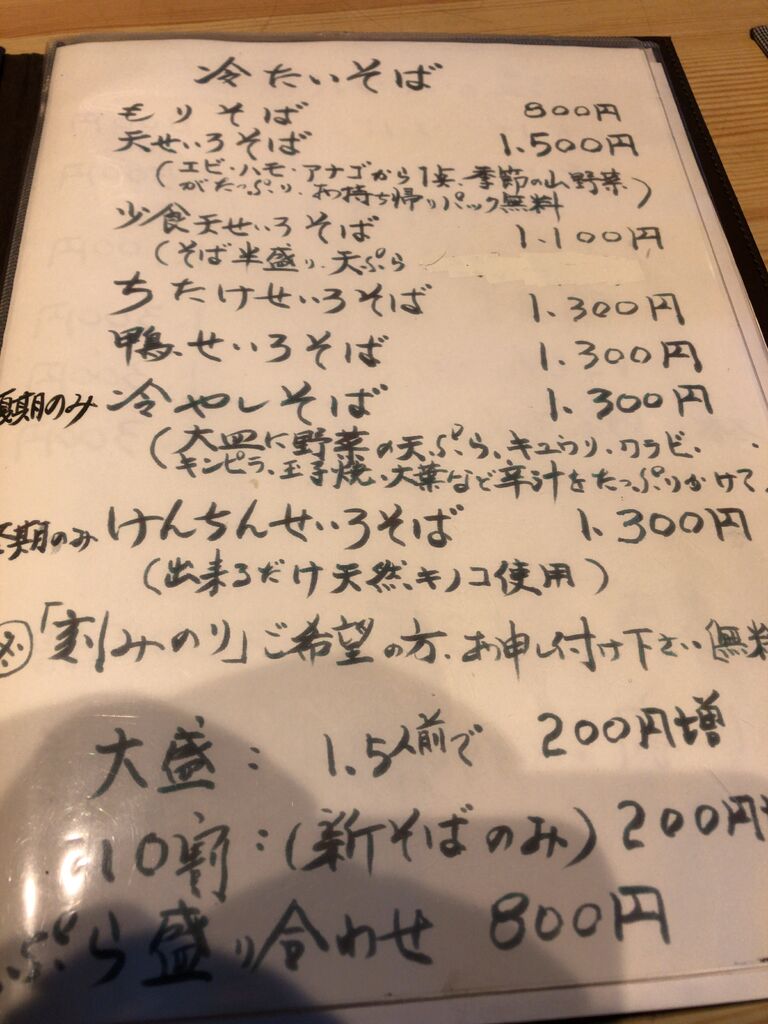 冷たいそば
もりそば 800円
天せいろそば 1.500円
(エビ・ハモ・アナゴから1点、季節の山野菜
がたっぷり、お持ち帰りパック無料)
少食天せいろそば 1.100円
(そば半盛り、天ぷら
ちたけせいろそば 1.300円
鴨せいろそば 1.300円
夏期のみ 冷やしそば 1.300円
(大皿に野菜の天ぷら、キュウリ、ワラビ、
キンピラ、玉子焼、大葉など辛汁をたっぷりかけて
期のみ けんちんせいろそば 1.300円
(出来るだけ天然キノコ使用)
※「刻みのり」ご希望の方、お申し付け下さい(無料
大盛: 1.5人前で 200円増
10割:(新そばのみ) 200円
ぷら盛り合わせ 800円